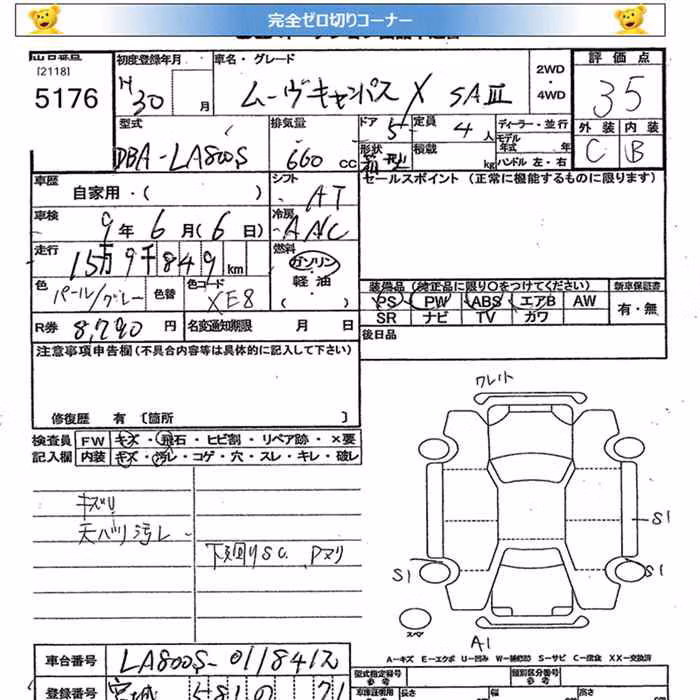 完全ゼロ切りコーナー
[2118]
5176
初度登録年月
H30 月
車名・グレード
ムーヴキャンバス X SAIII
2WD・4WD
評価点
35
外装 内装
C B
型式
DBA-LA800S
排気量
660 CC
ドア 5 定員 4人
形状 積載 kg
ディーラー・並行
モデル年式 年
ハンドル 左・右
車歴
自家用・( )
シフト
AT
セールスポイント (正常に機能するものに限ります)
車検
9年 6月(6日)
冷房
AAC
走行
15万9千849km
燃料
ガソリン・軽油・( )
色
パール/グレー
色替
色コード
XE8
装備品(純正品に限り○をつけてください)
PS PW ABS エアB AW
SR ナビ TV カワ
新車保証書
有・無
R券 8,290円
名変通知期限 月 日
後日品
注意事項申告欄(不具合内容等は具体的に記入して下さい)
修復歴 有〔箇所 〕
検査員記入欄
FW キズ・飛石・ヒビ割・リペア跡・×要
内装 キズ・汚レ・コゲ・穴・スレ・キレ・破レ
キズU
天バリ汚レ
下廻りSC. Pヌリ
ワレ
S1
S1
S1
スペア
A1
A-キズ E-エクボ U-凹み W-補修跡 S-サビ C-腐食 XX-交換済
車台番号
LA800S-0118412
登録番号
宮城 581
型式指定番号
参考
類別区分番号
参考
車庫証明用
参考
長さ
幅
高さ